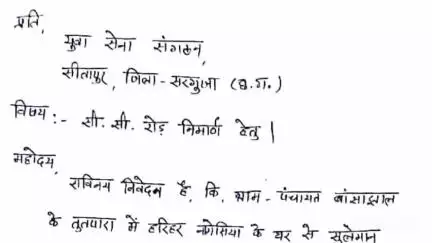 प्रति,
युवा सेना संगठन,
सीतापुर, जिला - सरगुजा (छ.ग.)
विषय :- सी. सी. रोड़ निमार्ण हेतु |
महोदय,
सविनय निवेदन है, कि, ग्राम - पंचायत बांसाझाल
के तुतपारा में हरिहर नगेसिया के घर से सुलेमान